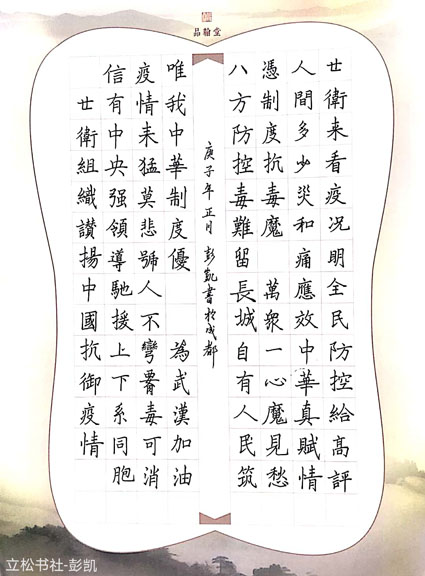 品翰堂
世衛来看疫况明全民防控給高評
人間多少災和痛應效中華真賦情
憑制度抗毒魔 萬衆一心魔見愁
八方防控毒難留長城自有人民筑
庚子年正月 彭凱書於成都
唯我中華制度優 為武漢加油
疫情来猛莫悲號人不彎脊毒可消
信有中央强領導馳援上下系同胞
世衛組織讃揚中國抗御疫情
立松书社-彭凯